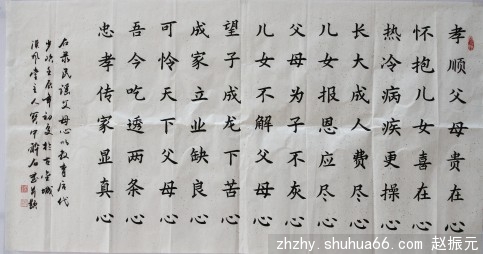 孝顺父母贵在心
怀抱儿女喜在心
热冷病疾更操心
长大成人费尽心
儿女报恩应尽心
父母为子不灰心
儿女不解父母心
望子成龙下苦心
成家立业缺良心
可怜天下父母心
吾今吃透两条心
忠孝传家显真心
右录民谣父母心以教育后代
岁次壬辰年初夏於古
汉风堂主人
zhzhy.shuhua66.com 赵振元